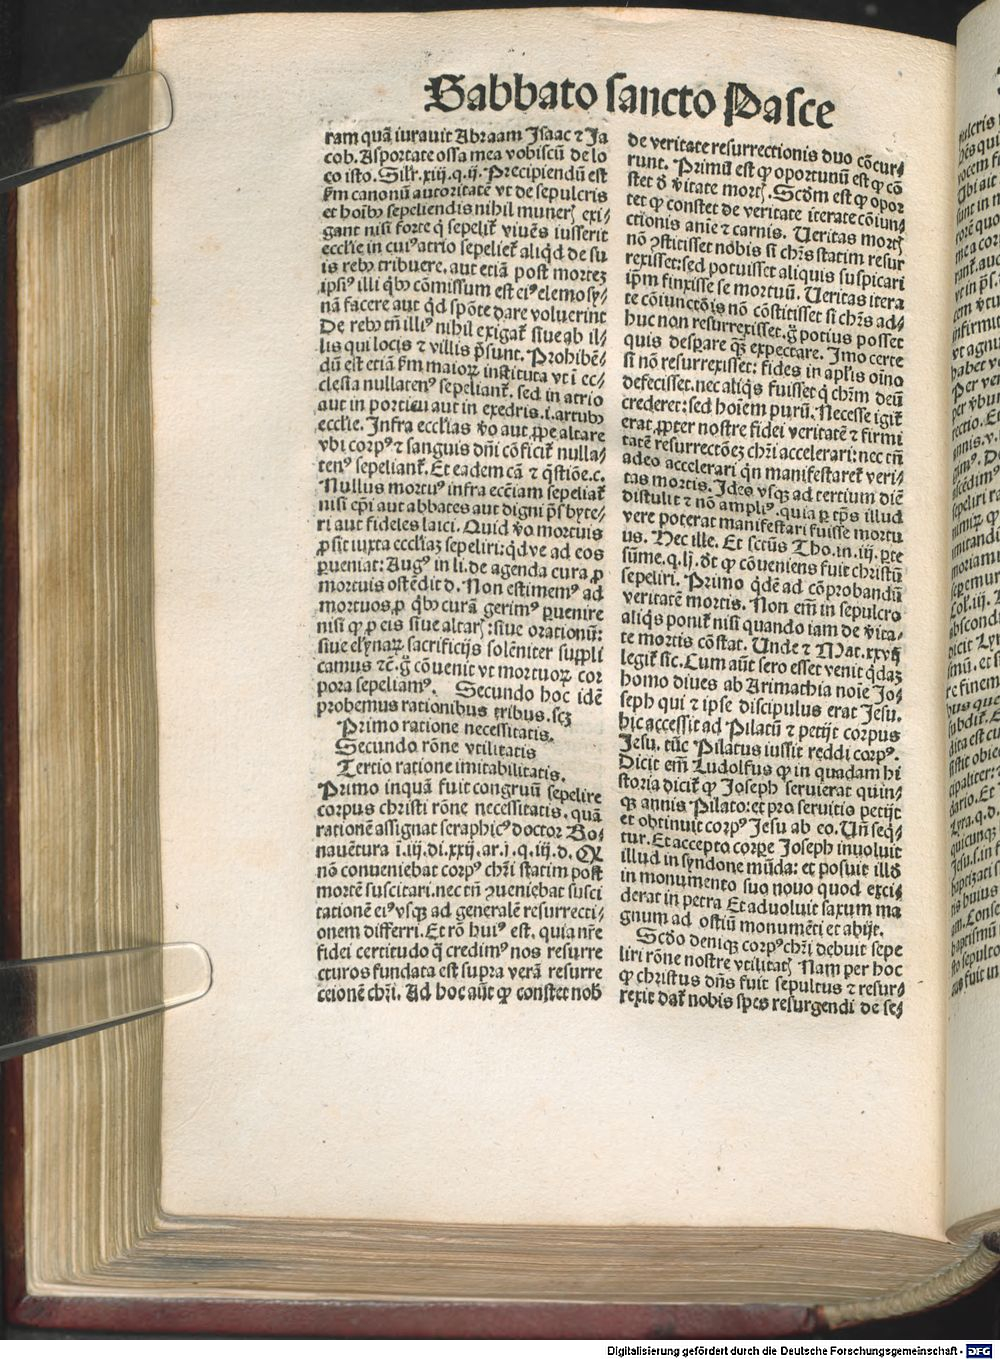 Sabbato sancto Pasce
ram quã iurauit Abraam Isaac ⁊ Ja
cob. Asportate ossa mea vobiscũ de lo
co isto. Silr̃.xiij.q.ij. Precipiendũ est
ẜm canonũ autoritatẽ vt de sepulcris
et hoĩbꝰ sepeliendis nihil munerꝭ exi⸗
gant nisi forte q̃ sepelit᷑ viuẽs iusserit
eccl̃ie in cuiꝰ atrio sepeliet᷑ aliq̃d de su
is rebꝰ tribuere. aut etiã post mortez
ipsiꝰ illi q̃bꝰ cõmissum est eiꝰ elemosy⸗
nã facere aut q̃d spõte dare voluerint
De rebꝰ tñ illiꝰ nihil exigat᷑ siue ab il⸗
lis qui locis ⁊ villis p̃sunt. Prohibẽ⸗
dũ est etiã ẜm maioꝝ instituta vt ĩ ec⸗
clesia nullatenꝰ sepeliant᷑. sed in atrio
aut in porticu aut in exedris.i.artubꝰ
eccl̃ie. Infra eccl̃ias v̊o aut ꝓpe altare
vbi corpꝰ ⁊ sanguis dñi cõficit᷑ nulla⸗
tenꝰ sepeliant᷑. Et eadem cã ⁊ q̃stiõe.c.
Nullus mortuꝰ infra ecc̃iam sepeliat᷑
nisi ep̃i aut abbates aut digni p̃sbyte⸗
ri aut fideles laici. Quid v̊o mortuis
ꝓsit iuxta eccl̃iaz sepeliri: q̃d ve ad eos
ꝑueniat: Augꝰ in li. de agenda cura ꝓ
mortuis ostẽdit d. Non estimemꝰ ad
mortuos ꝓ q̃bꝰ curã gerimꝰ ꝑuenire
nisi ꝙ ꝓ eis siue altarꝭ: siue orationũ:
siue elynaꝝ sacrificijs solẽniter suppli
camus ⁊c̃. g̊ cõuenit vt mortuoꝝ cor
pora sepeliamꝰ. Secundo hoc idẽ
probemus rationibus tribus. scꝫ
Primo ratione necessitatis.
Secundo rõne vtilitatis
Tertio ratione imitabilitatis.
Primo inquã fuit congruũ sepelire
corpus christi rõne necessitatis. quã
rationẽ assignat seraphicꝰ doctor Bo⸗
nauẽtura ĩ.iij.di.xxij.ar.j.q.iij.d. Qꝛ
nõ conueniebat corpꝰ chr̃i statim post
mortẽ suscitari. nec tñ ↄueniebat susci
tationẽ eiꝰ vsqꝫ ad generalẽ resurrecti⸗
onem differri. Et rõ huiꝰ est. quia nr̃e
fidei certitudo q̃ credimꝰ nos resurre
cturos fundata est supra verã resurre
ctionẽ chr̃i. Ad hoc aũt ꝙ constet nob̃
de veritate resurrectionis duo cõcur⸗
runt. Primũ est ꝙ oportunũ est ꝙ cõ
stet d̊ v̊itate mortꝭ. Scd̃m est ꝙ opor
tet ꝙ constet de veritate iterate cõiun⸗
ctionis anie ⁊ carnis. Ueritas mortꝭ
nõ ↄstitisset nobis si chr̃s statim resur
rexisset: sed potuisset aliquis suspicari
ip̃m finxisse se mortuũ. Ueritas itera
te cõiunctõis nõ cõstitisset si chr̃s ad⸗
huc non resurrexisset. g̊ potius posset
quis despare qꝫ expectare. Imo certe
si nõ resurrexisset: fides in apl̃is oĩno
defecisset. nec aliq̃s fuisset q̃ chr̃m deũ
crederet: sed hoĩem purũ. Necesse igit᷑
erat ꝓpter nostre fidei veritatẽ ⁊ firmi
tatẽ resurrectõeꝫ chr̃i accelerari: nec tñ
adeo accelerari q̃n manifestaret᷑ veri⸗
tas mortis. Ideo vsqꝫ ad tertium diẽ
distulit ⁊ nõ ampliꝰ. quia ꝑ tp̃s illud
vere poterat manifestari fuisse mortu
us. Hec ille. Et sctũs Tho.in.iij.ꝑte
sũme.q.lj. d̃t ꝙ cõueniens fuit christũ
sepeliri. Primo q̃dẽ ad cõprobandũ
veritatẽ mortis. Non em̃ in sepulcro
aliq̃s ponit᷑ nisi quando iam de v̊ita⸗
te mortis cõstat. Unde ⁊ Mat.xxvij
legit᷑ sic. Cum aũt sero esset venit q̃daꝫ
homo diues ab Arimathia noĩe Jo⸗
seph qui ⁊ ipse discipulus erat Jesu.
hic accessit ad Pilatũ ⁊ petijt corpus
Jesu. tũc Pilatus iussit reddi corpꝰ.
Dicit em̃ Ludolfus ꝙ in quadam hi
storia dicit᷑ ꝙ Joseph seruierat quin⸗
qꝫ annis Pilato: et pro seruitio petijt
et obtinuit corpꝰ Jesu ab eo. Uñ seq̃⸗
tur. Et accepto corꝑe Joseph inuoluit
illud in syndone mũda: et posuit illd̃
in monumento suo nouo quod exci⸗
derat in petra Et aduoluit saxum ma
gnum ad ostiũ monumẽti et abijt.
Scd̃o deniqꝫ corpꝰ chr̃i debuit sepe
liri rõne nostre vtilitatꝭ Nam per hoc
ꝙ christus dñs fuit sepultus ⁊ resur⸗
rexit dat᷑ nobis spes resurgendi de se⸗
Digitalisierung gefördert durch die Deutsche Forschungsgemeinschaft - DFG